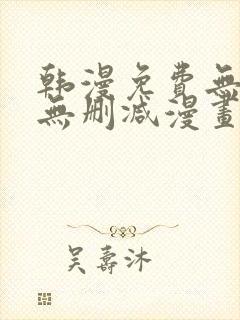 韩漫免費無
無删减漫畫
吴壽沐